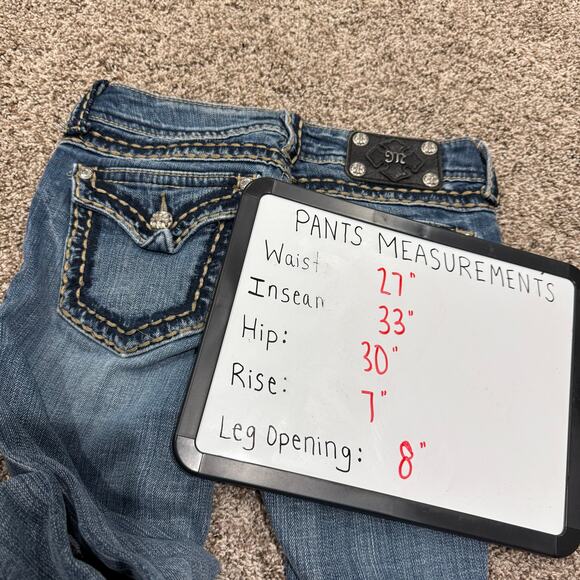 PANTS MEASUREMENTS
Waist 27"
Insean 33"
Hip: 30"
Rise: 7"
Leg Opening: 8"